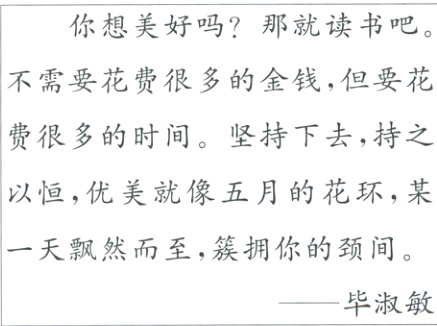 你想美好吗？那就读书吧。
不需要花费很多的金钱，但要花
费很多的时间。坚持下去，持之
以恒，优美就像五月的花环，某
一天飘然而至，簇拥你的颈间。
——毕淑敏